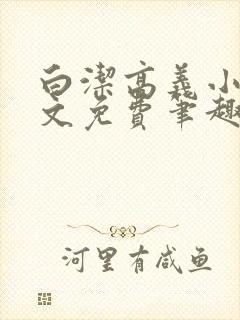 白潔高義小
文免費筆趣
河里有咸鱼